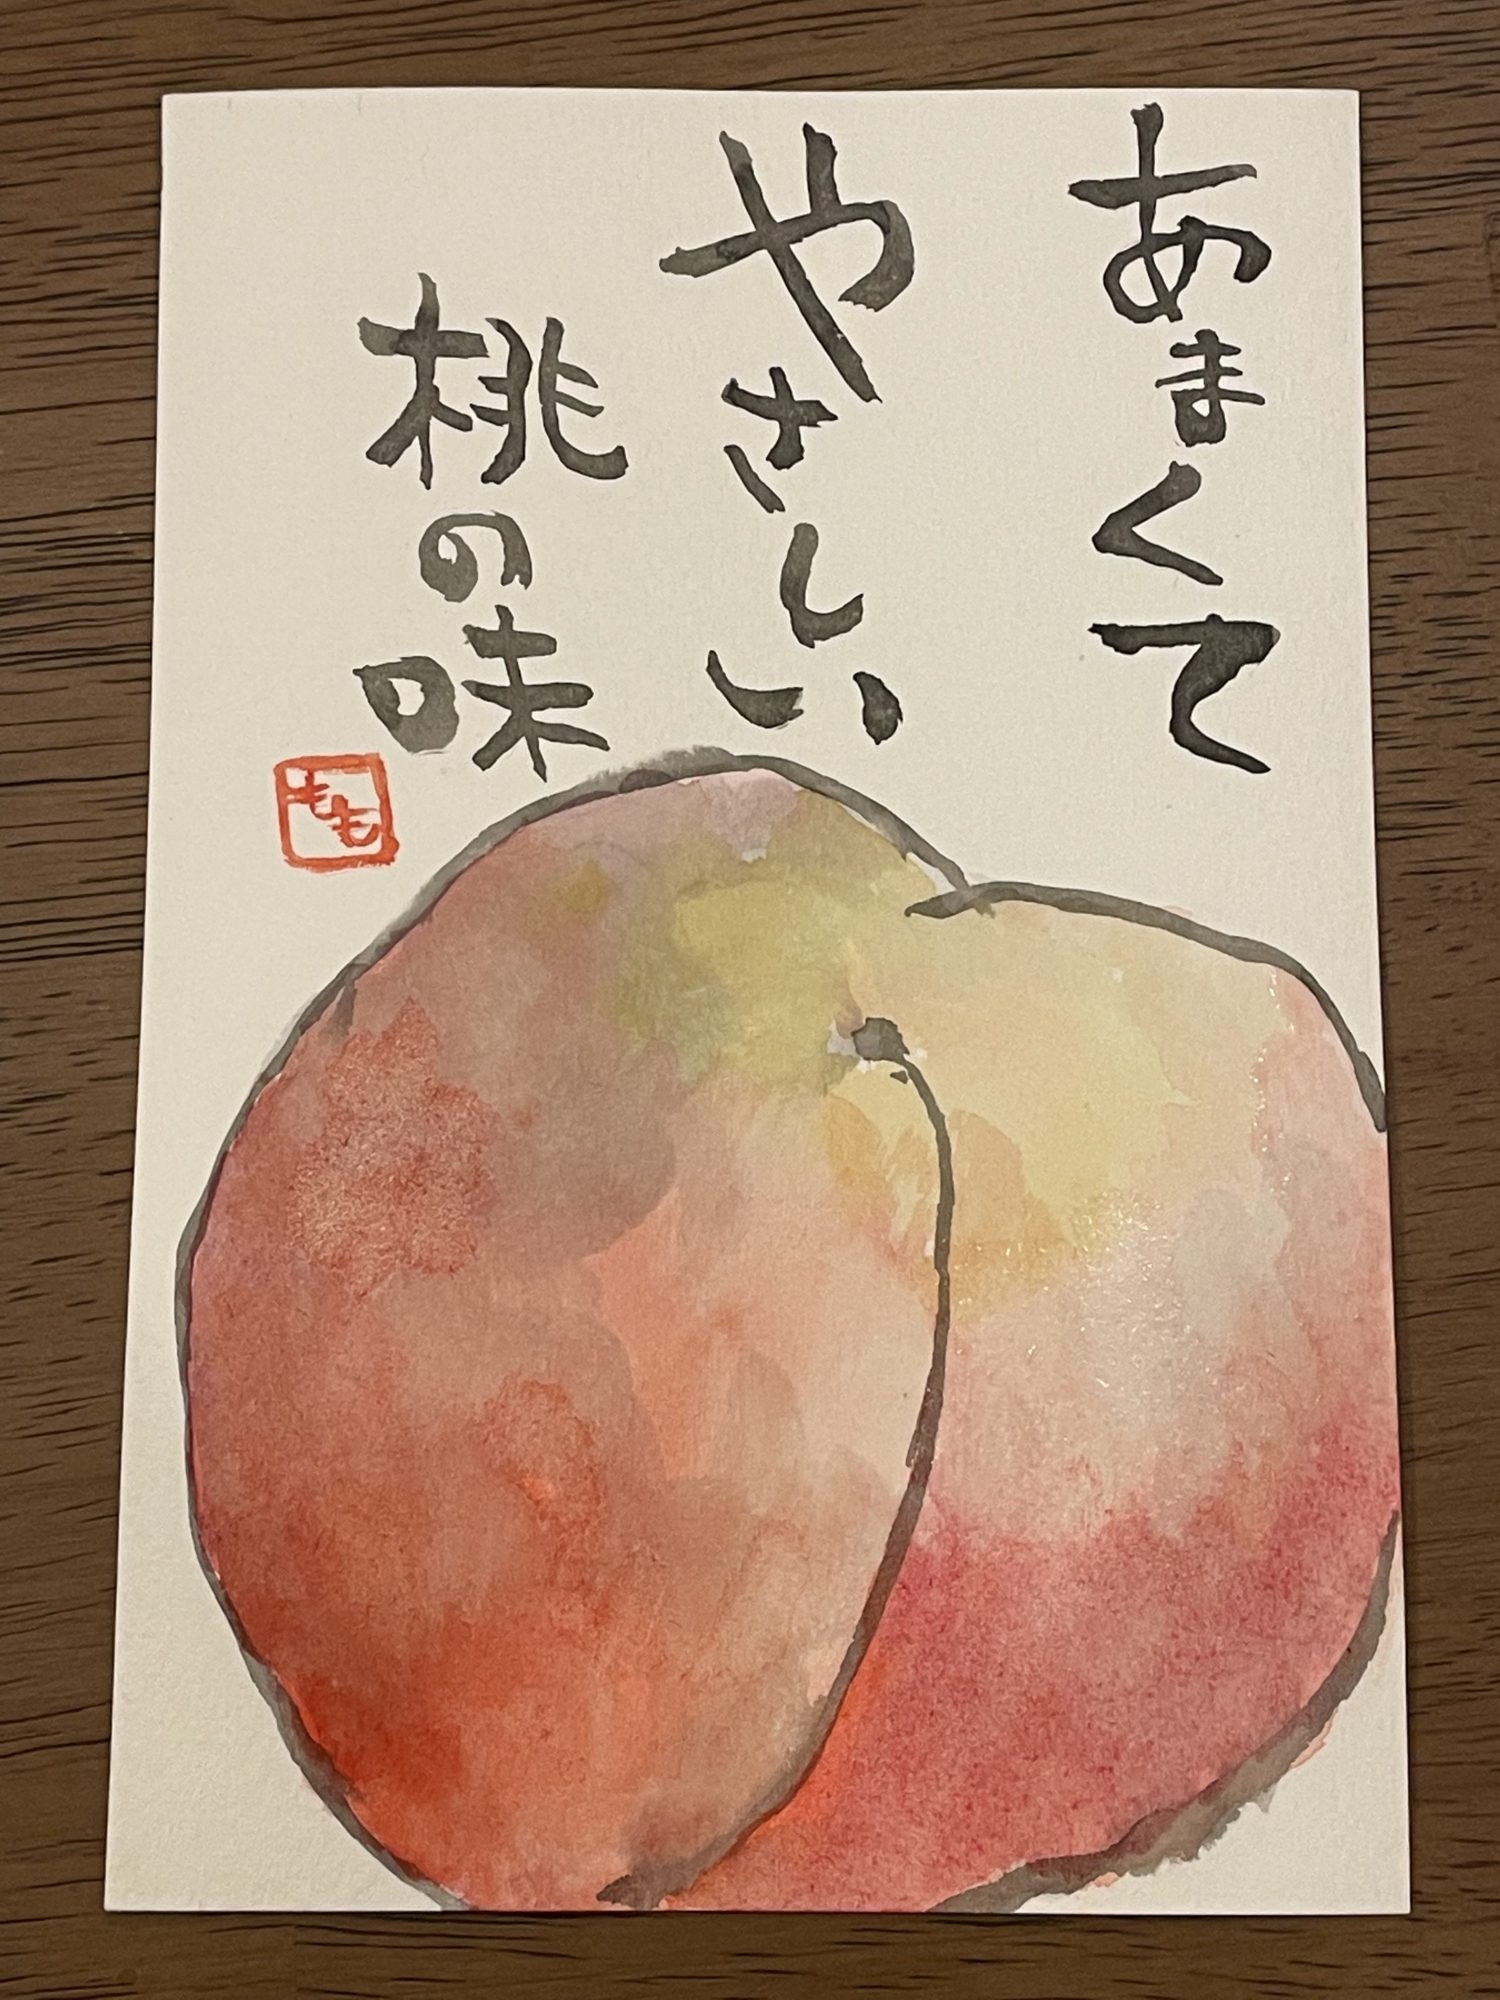 あまくて
やさしい
桃の味
もも